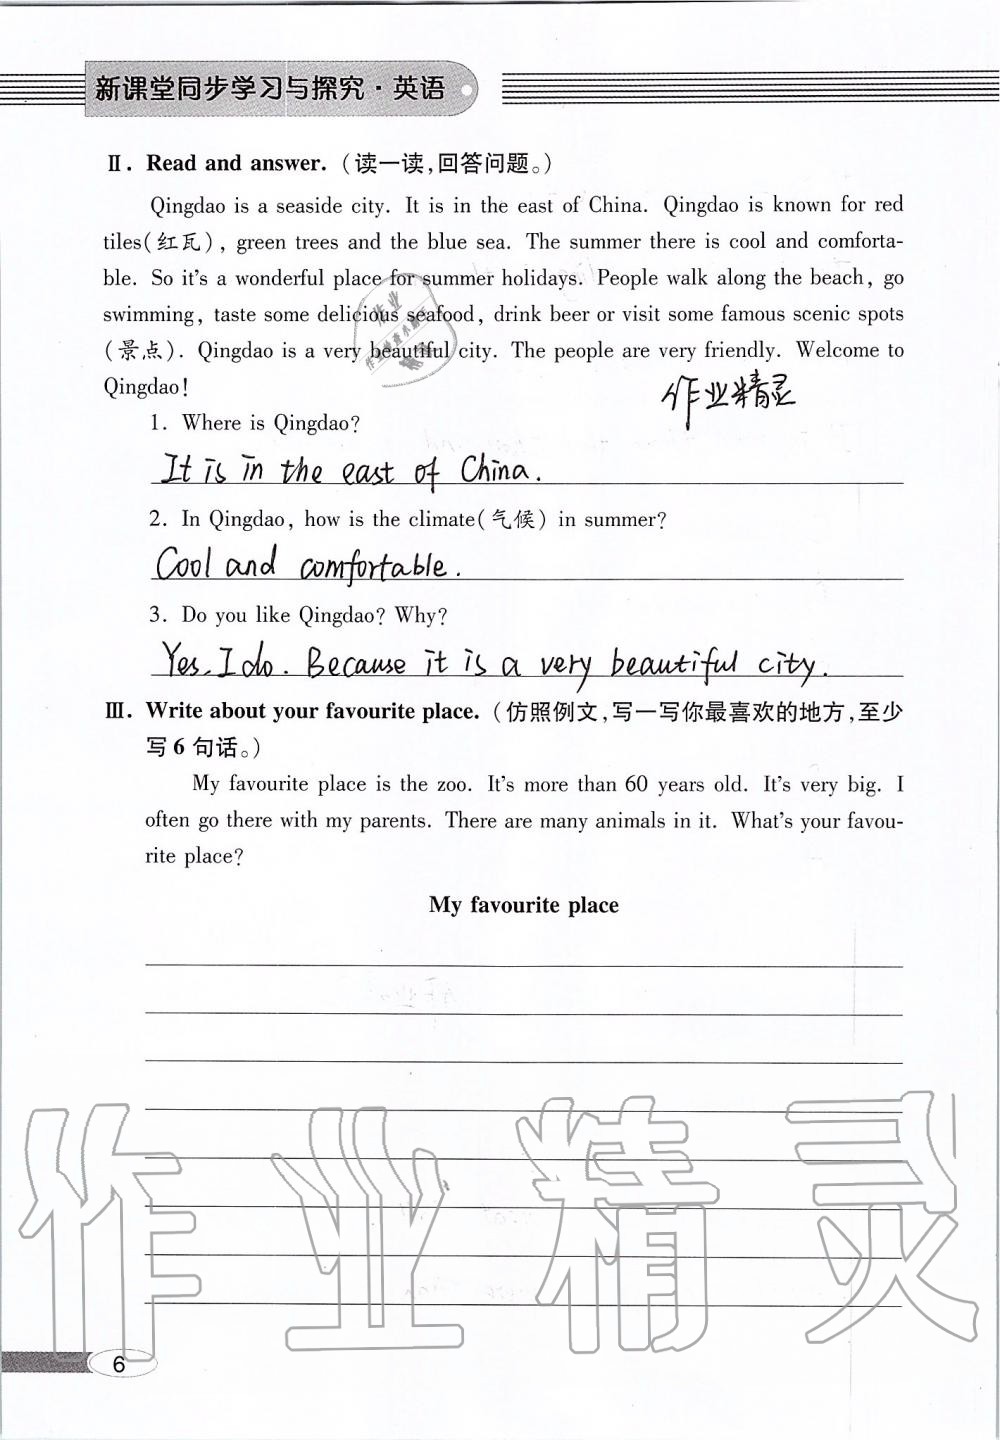 新课堂同步学习与探究·英语
Ⅱ. Read and answer.(读一读,回答问题。)
Qingdao is a seaside city. It is in the east of China. Qingdao is known for red
tiles(红瓦), green trees and the blue sea. The summer there is cool and comforta-
ble. So it's a wonderful place for summer holidays. People walk along the beach, go
swimming, taste some delicious seafood, drink beer or visit some famous scenic spots
(景点). Qingdao is a very beautiful city. The people are very friendly. Welcome to
Qingdao!
作业精灵
1. Where is Qingdao?
It is in the east of China.
2. In Qingdao, how is the climate(气候) in summer?
Cool and comfortable.
3. Do you like Qingdao? Why?
Yes, I do. Because it is a very beautiful city.
Ⅲ. Write about your favourite place.(仿照例文,写一写你最喜欢的地方,至少
写6句话。)
My favourite place is the zoo. It's more than 60 years old. It's very big. I
often go there with my parents. There are many animals in it. What's your favou-
rite place?
My favourite place
作业精灵
6